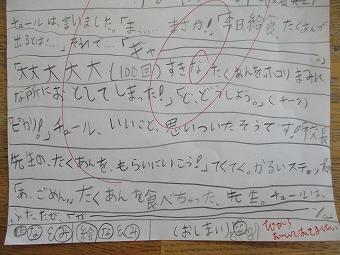 チュールは、言いました。「ま…… まさか!今日給食、たくあんが
出るとは…。」それで…「ギャー
「大大大大大(100回)すきなたくあんをホコリまみれ
な所におとしてしまった!」「ど、どうしよう。」(チーン)
ピカリ!チュール、いいこと、思いついたそうです。校長
先生の、たくあんを、もらいにいこう!てくてく。かるいステップ
「あ、ごめん。たくあんを食べちゃった、先生。チュールは、
なみ 絵 なみ (おしまい)